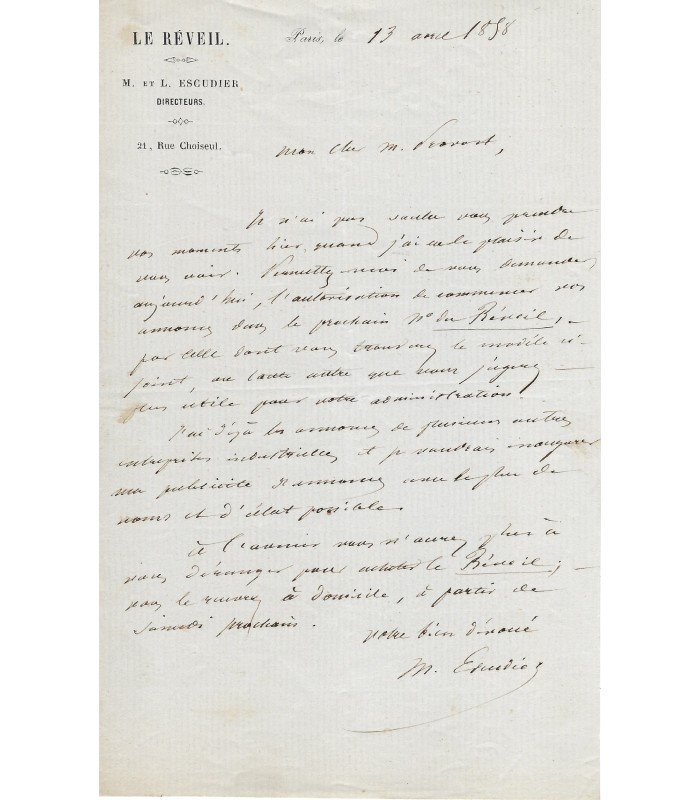 LE RÉVEIL.
Paris, le 13 avril 1858
M. ET L. ESCUDIER
DIRECTEURS.
21, Rue Choiseul.
Mon cher M.
Je n'ai pas voulu vous prendre
vos moments hier quand j'ai eu le plaisir de
vous voir. Permettez-moi de vous demander,
aujourd'hui, l'autorisation de commencer vos
annonces dans le prochain No du Réveil, -
par celle dont vous trouverez le modèle ci-
joint, ou toute autre que vous jugerez
plus utile pour votre administration.
J'ai déjà les annonces de plusieurs autres
entreprises industrielles et je voudrais inaugurer
ma publicité d'annonces avec le plus de
noms et d'éclat possible.
À l'avenir vous n'aurez plus à
vous déranger pour acheter le Réveil; -
vous le recevrez à domicile, à partir de
samedi prochain.
Votre bien dévoué
M. Escudier